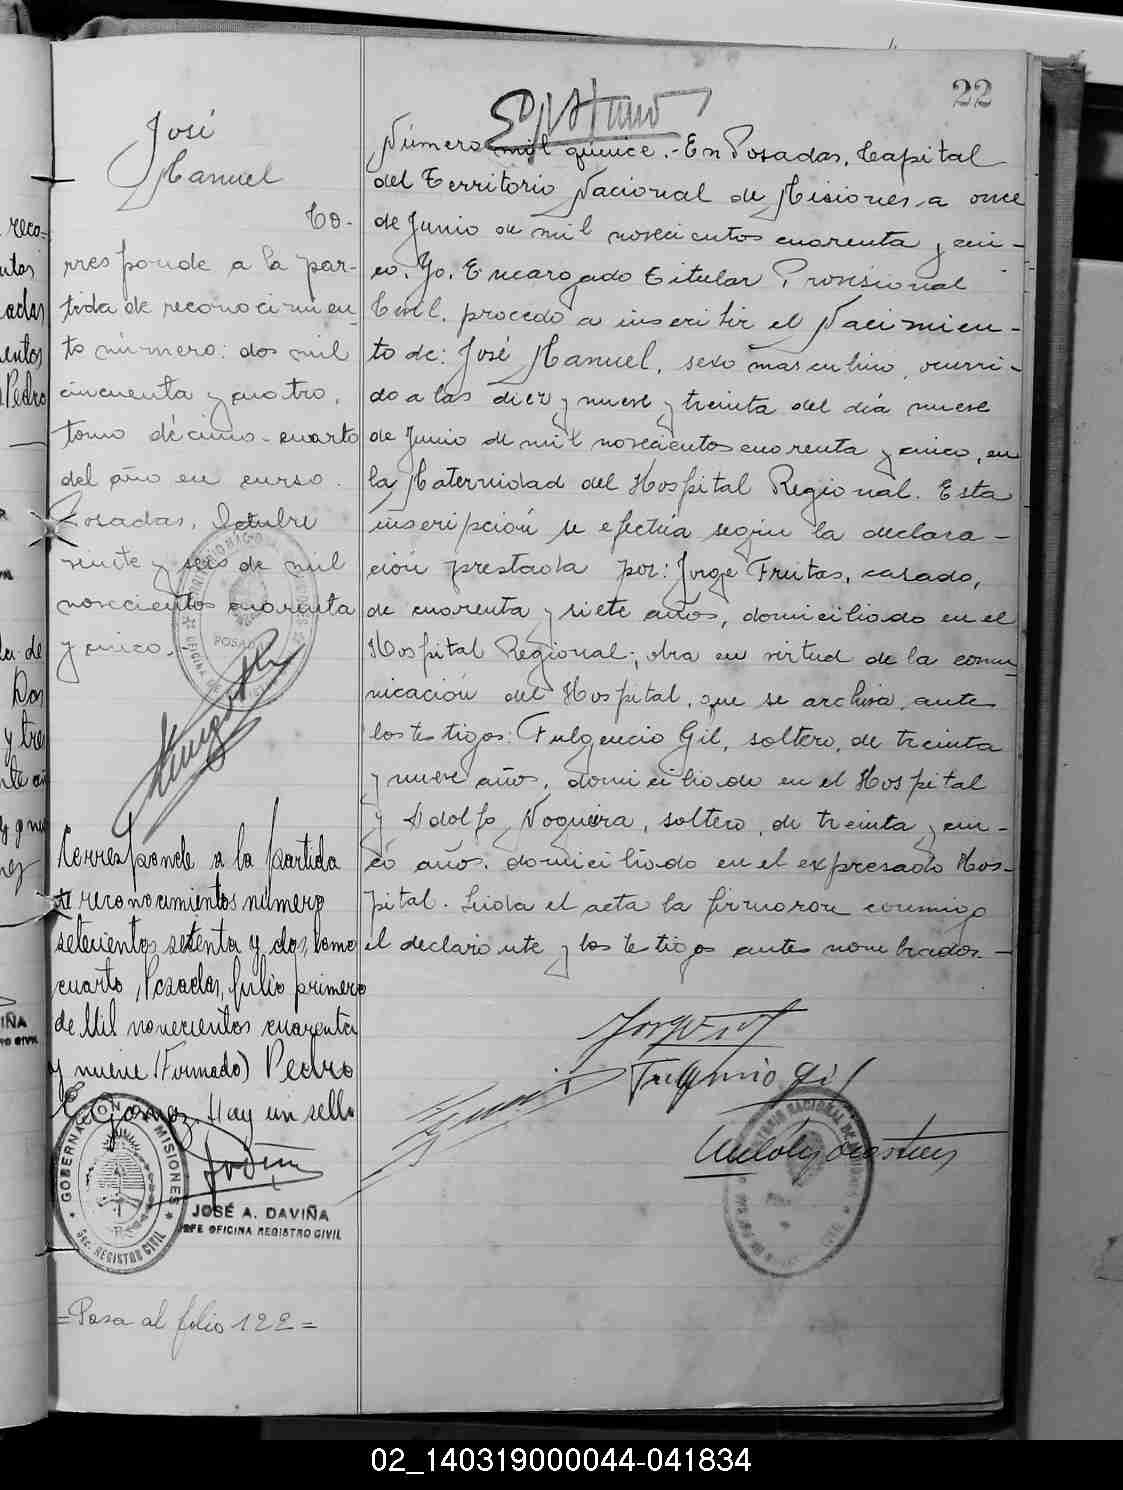 22
José
Manuel
Co-
rresponde a la par-
tida de reconocimien-
to número: dos mil
cincuenta y cuatro,
tomo décimo-cuarto
del año en curso.
Posadas, Octubre
veinte y seis de mil
novecientos cuarenta
y cinco.-
Corresponde a la partida
de reconocimientos número
setecientos setenta y dos, tomo
cuarto, Posadas, Julio primero
de Mil novecientos cuarenta
y nueve (Firmado) Pedro
Gomez. Hay un sello
GOBERNACION DE MISIONES
Sec. REGISTRO CIVIL
JOSÉ A. DAVIÑA
JEFE OFICINA REGISTRO CIVIL
=Pasa al folio 122=
Número mil quince.- En Posadas, Capital
del Territorio Nacional de Misiones, a once
de Junio de mil novecientos cuarenta y cin-
co. Yo, Encargado Titular Provisional
Civil, procedo a inscribir el Nacimien-
to de: José Manuel, sexo masculino, ocurri-
do a las diez y nueve y treinta del día nueve
de Junio de mil novecientos cuarenta y cinco, en
la Maternidad del Hospital Regional. Esta
inscripción se efectúa según la declara-
ción prestada por: Jorge Freitas, casado,
de cuarenta y siete años, domiciliado en el
Hospital Regional; obra en virtud de la comu-
nicación del Hospital, que se archiva, ante
los testigos: Fulgencio Gil, soltero, de treinta
y nueve años, domiciliado en el Hospital
y Adolfo Nogueira, soltero, de treinta y cin-
co años, domiciliado en el expresado Hos-
pital. Leida el acta la firmaron conmigo
el declarante y los testigos antes nombrados.-
Fulgencio Gil
02_140319000044-041834